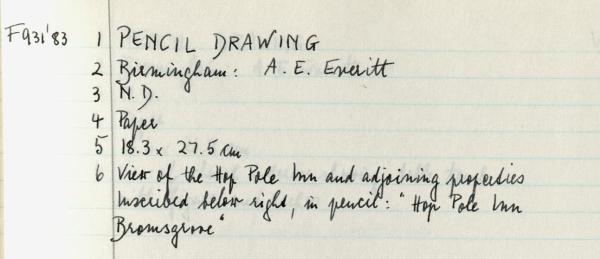 F931'83 1 PENCIL DRAWING
2 Birmingham: A. E. Everitt
3 N.D.
4 Paper
5 18.3 x 27.5 cm
6 View of the Hop Pole Inn and adjoining properties
Inscribed below right, in pencil: "Hop Pole Inn
Bromsgrove"